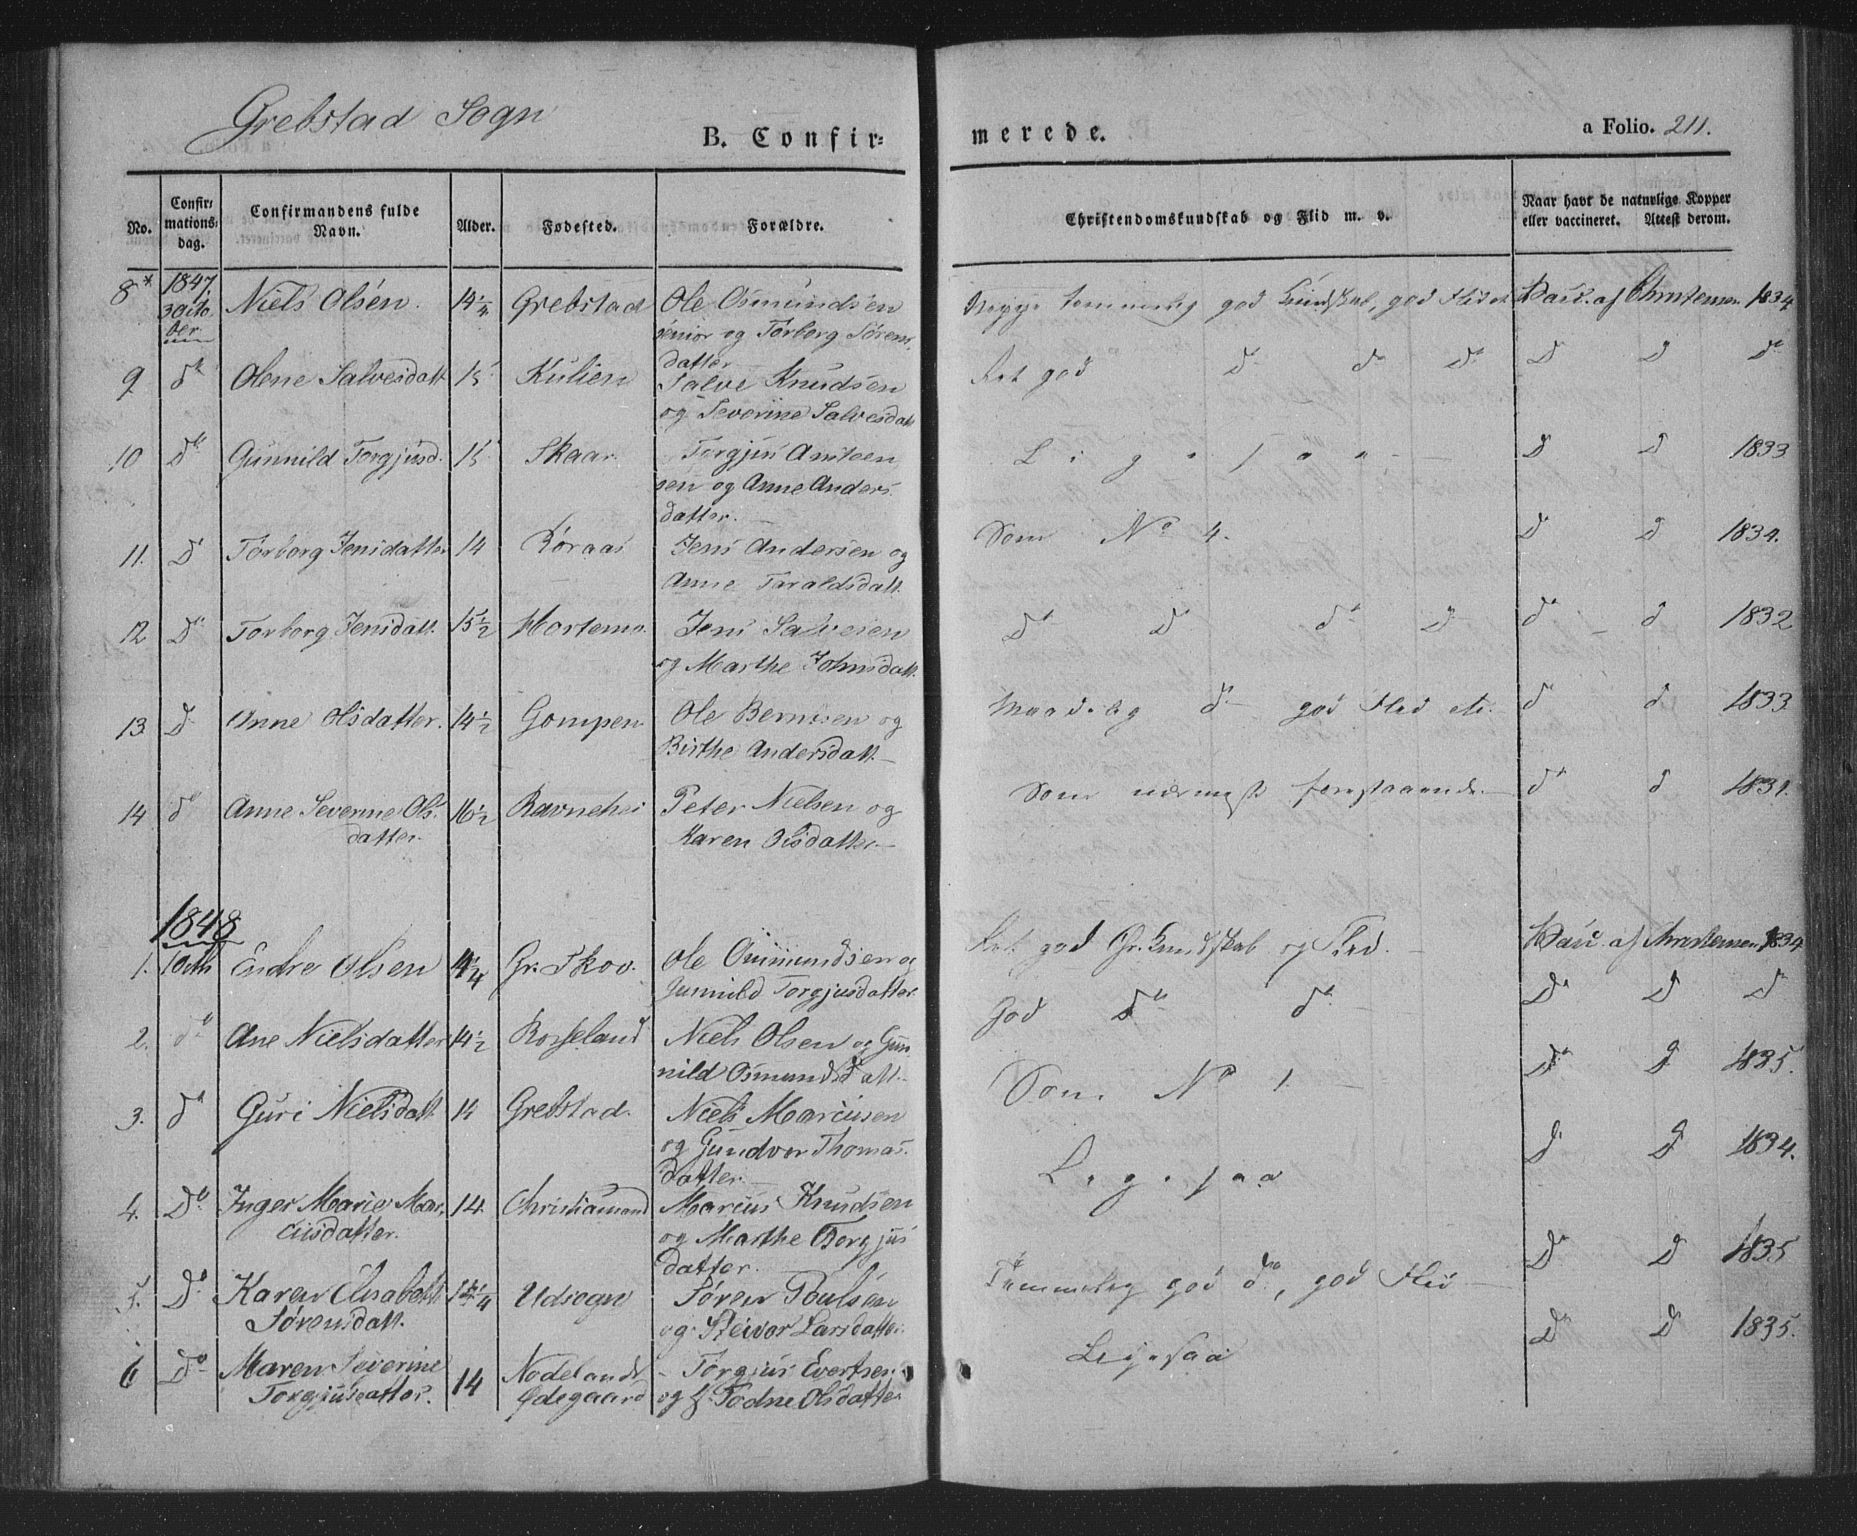 Grebstad Sogn
B. Confir=
merede.
a Folio. 211.
No.
Confir=
mations=
dag.
Confirmandens fulde
Navn.
Alder.
Fødested.
Forældre.
Christendomskundskab og Flid m. v.
Naar havt de naturlige Kopper
eller vaccineret. Attest derom.
8* 1847. 3 Octo= ber Niels Olsen. 14½ Grebstad Ole Osmundsen
senior og Torborg Sørens=
datter
god Kundskab, god Flid Vacc. af Christensen 1834
9 do Olene Salvesdatt 15 Kulien Salve Knudsen
og Severine Salvesdatt
Ret god do do do D D do
10 Do Gunnild Torgjusd. 15 Skaar Torgjus
sen og Anne Anders
datter.
Ligesaa D D 1833
11. D Torborg Jensdatter 14 Røraas Jens Andersen og
Anne Taraldsdatt.
Som No 4. D D 1834.
12 D Torborg Jensdatt. 15½ Hortemo Jens Salvesen
og Marthe Johnsdatt.
Do Do do D do d 1832
13 D Anne Olsdatter. 14½ Gompen Ole Berntsen og
Birthe Andersdatt.
Maadelig do god Flid etc. d d 1833
14 do Anne Severine Ols= 16½ Ravnehei Peter Nielsen og
datter Karen Olsdatter
Som nærmest foregaaende do d 1831.
1848
1. 1 Octb Endre Olsen 14¼ Gr. Skov. Ole Osmundsen og
Gunnild Torgjusdatter
Ret god Chr. Kundskab og Flid. Vacc. af Christensen 1834
2. do Ane Nielsdatter 14½ Rosseland Niels Olsen og Gun
nild Osmundsdatt.
God Do do Do D D
3. do Guri Nielsdatt 14 Grebstad. Niels Marcusen
og Gundvor Thomas=
datter
Som No 1. Do D 1835.
4. Do Inger Marie Mar= 14. Christiansand Marcus Knudsen
cusdatter. og Marthe Torgjus
datter.
Ligesaa D D 1834.
5. Do Karen Elisabeth 14¼ Udsogn Søren Poulsen
Sørensdatt. og Steivor Larsdatter
Temmelig god do, god Flid Do D 1835
6 Do Maren Severine 14 Nodelands Torgjus Evertsen
Torgjusdatter. Ødegaard og Todne Olsdatter
Ligesaa Do D 1835.